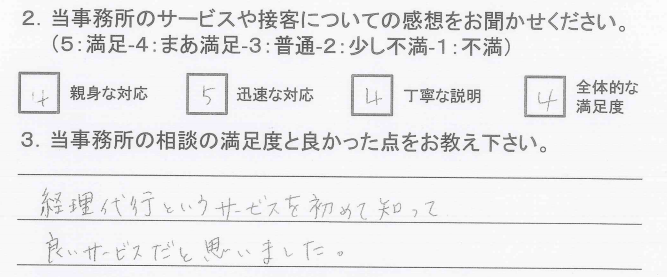 2. 当事務所のサービスや接客についての感想をお聞かせください。
(5:満足-4:まあ満足-3:普通-2:少し不満-1:不満)
4 親身な対応 5 迅速な対応 4 丁寧な説明 4 全体的な満足度
3. 当事務所の相談の満足度と良かった点をお教え下さい。
経理代行というサービスを初めて知って
良いサービスだと思いました。